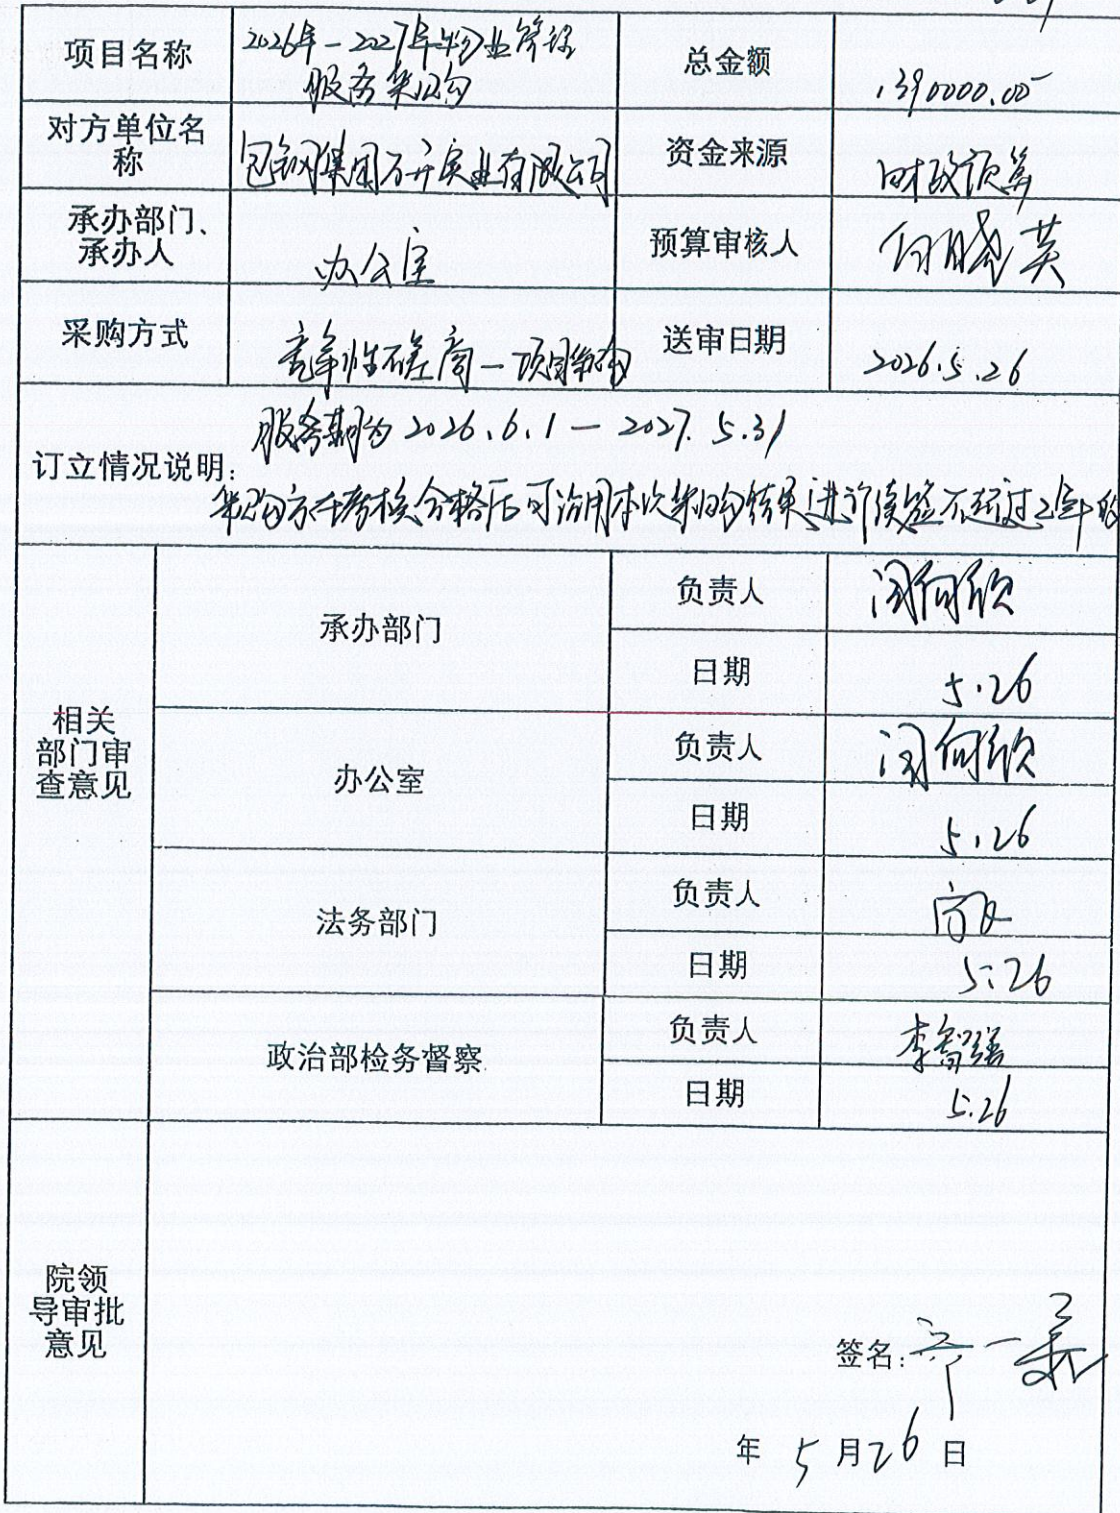 项目名称 2026年-2027年物业管理 总金额 390000.00
服务采购
对方单位名 包钢集团万开实业有限公司 资金来源 财政预算
称
承办部门、 办公室 预算审核人 白晓英
承办人
采购方式 竞争性磋商-项目采购 送审日期 2026.5.26
服务期为2026.6.1-2027.5.31
订立情况说明:
采购方年考核合格后可沿用本次采购结果进行续签不超过2年的
相关
部门审
查意见
承办部门 负责人
日期 5.26
办公室 负责人
日期 5.26
法务部门 负责人
日期 5.26
政治部检务督察 负责人 李智强
日期 5.26
院领
导审批
意见
签名:
年 5月26日